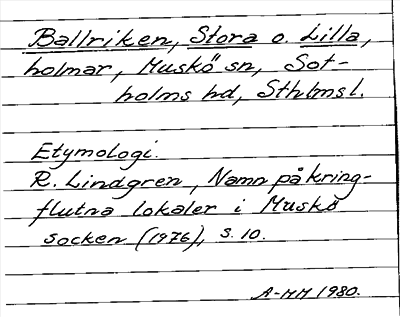 Ballriken, Stora o. Lilla,
holmar, Muskö sn, Sot-
holms hd, Sthlmsl.
Etymologi.
R. Lindgren, Namn på kring-
flutna lokaler i Muskö
socken (1976), s. 10.
A-MM 1980.